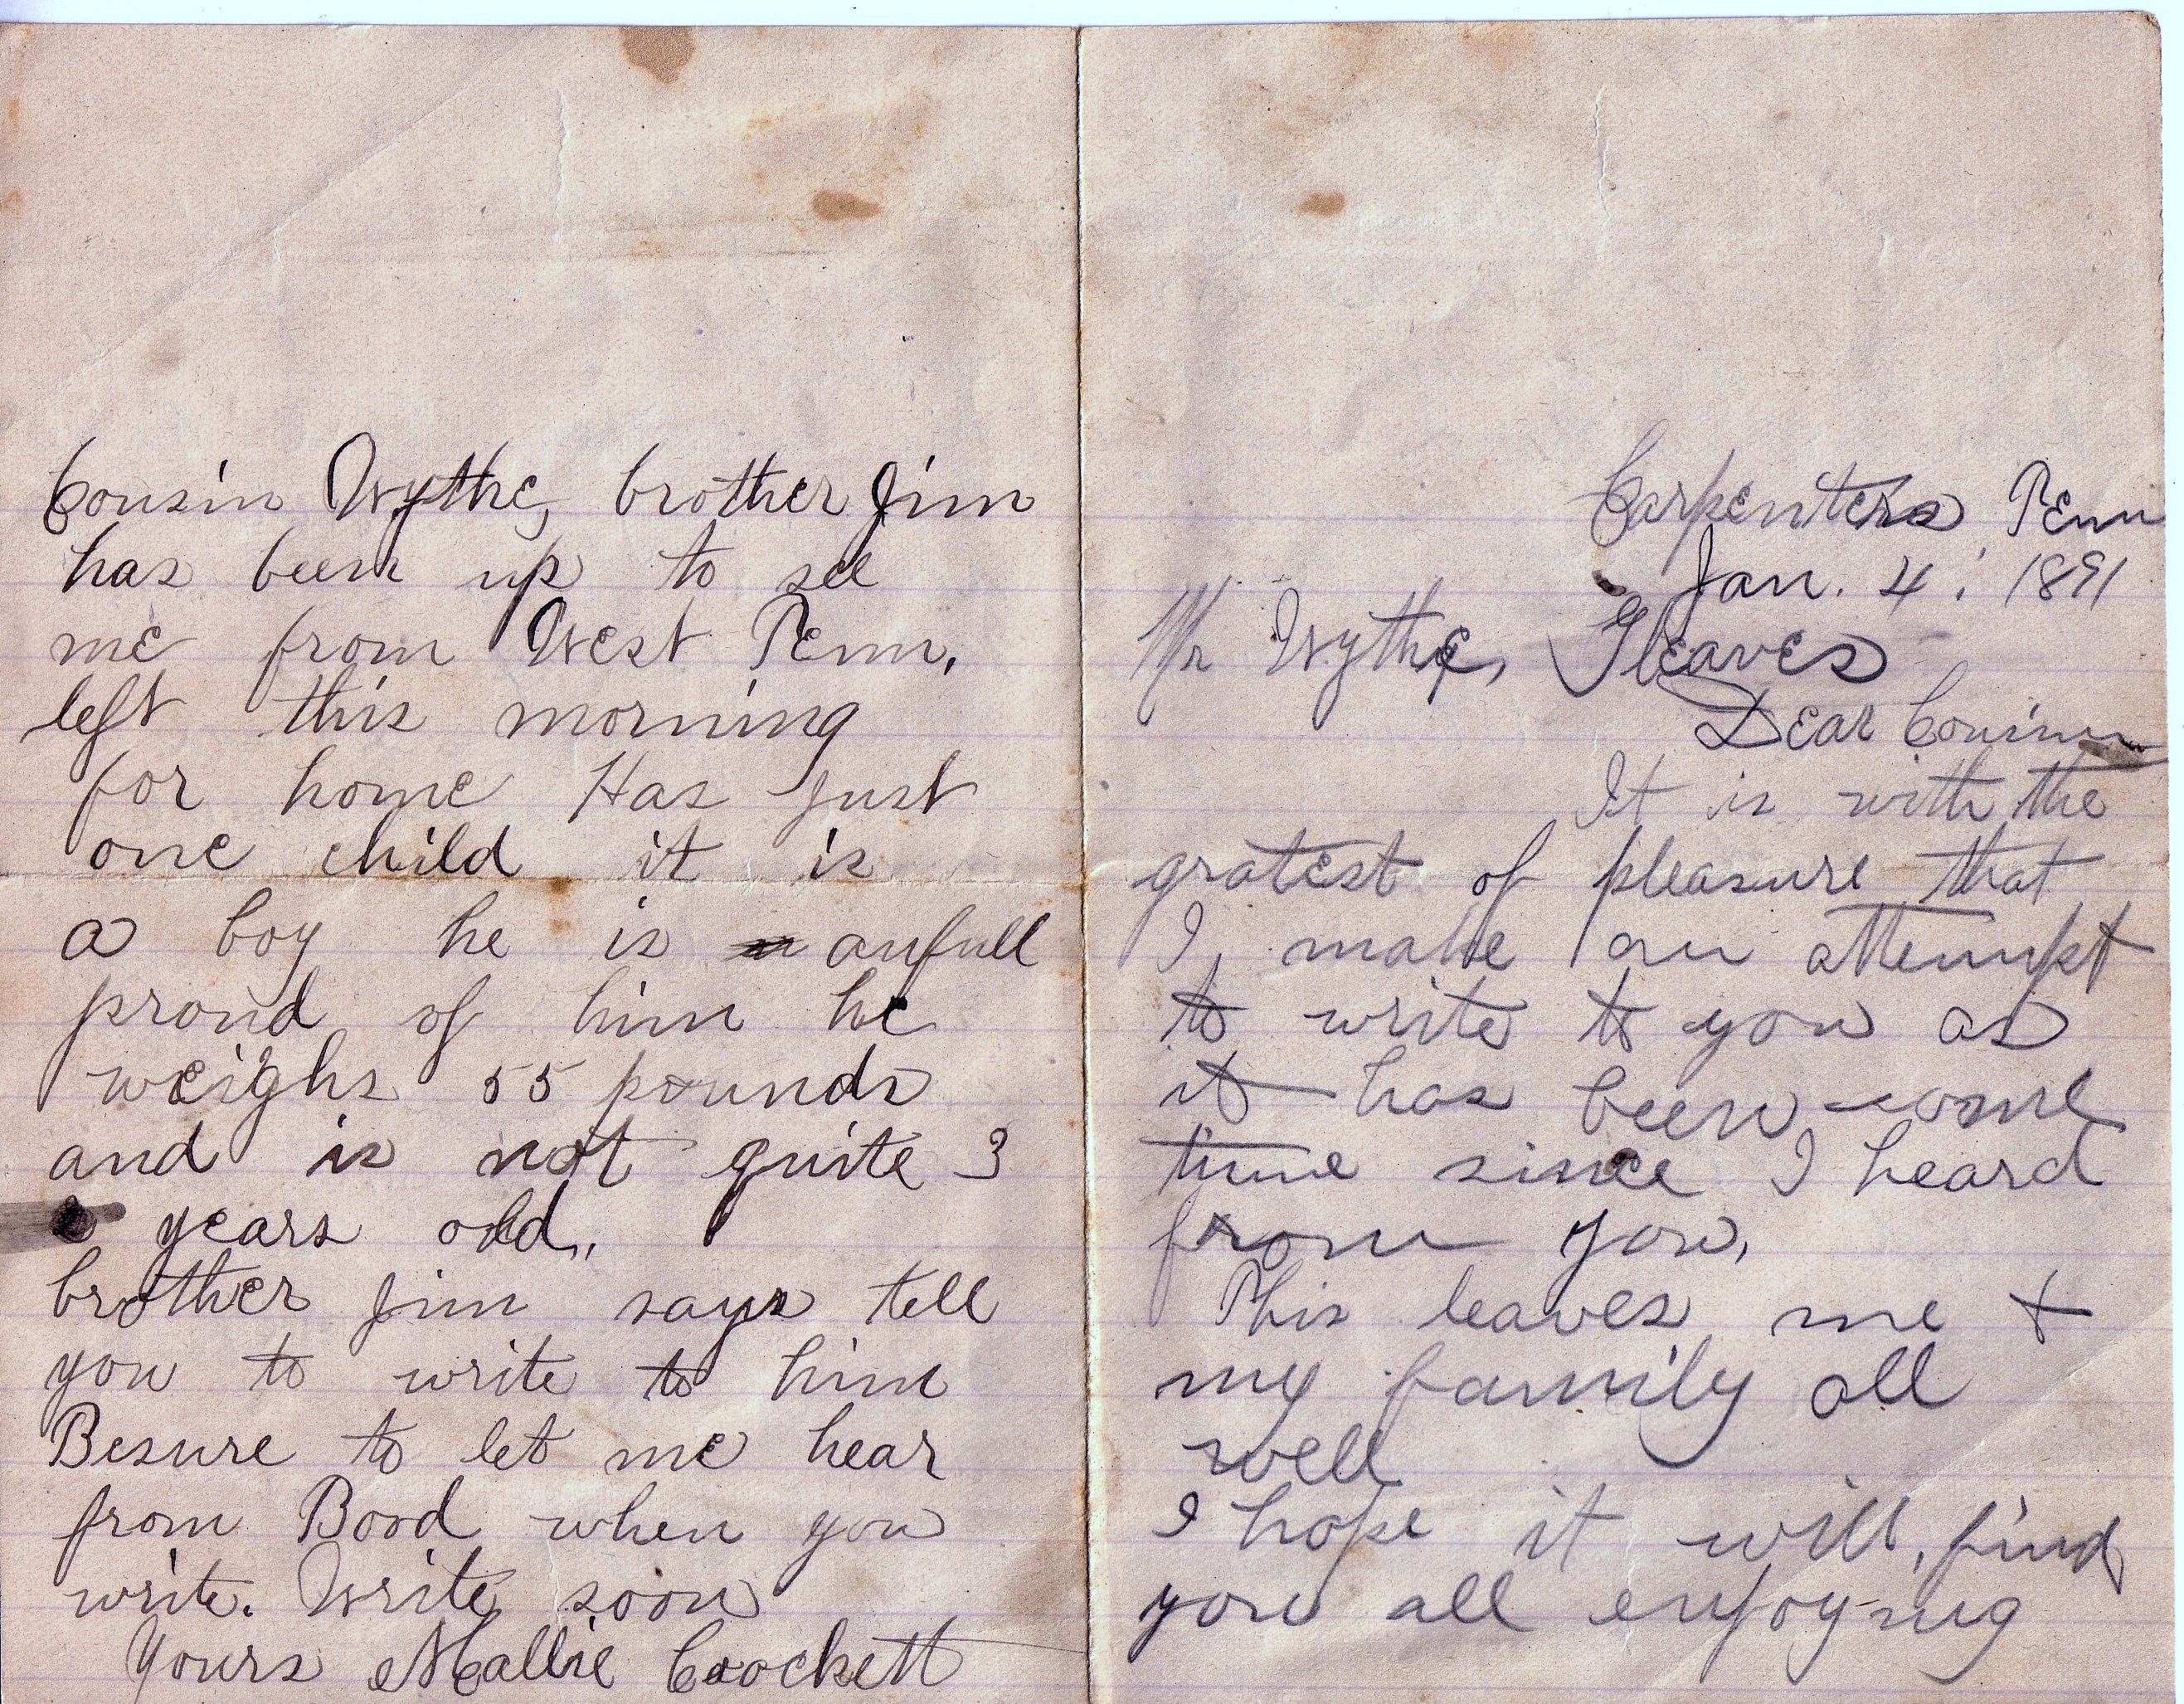 Carpenters Tenn
Jan. 4. 1891
Mr Wythe, Gleaves
Dear Cousin
It is with the
gratest of pleasure that
I make an attempt
to write to you as
it has been some
time since I heard
from you,
This leaves me &
my family all
well
I hope it will, find
you all enjoying
Cousin Wythe, brother Jim
has been up to see
me from West Tenn.
left this morning
for home Has just
one child it is
a boy he is awfull
proud of him he
weighs 55 pounds
and is not quite 3
years old.
brother Jim says tell
you to write to him
Besure to let me hear
from Bood when you
write. Write soon
Yours Mallie Crockett